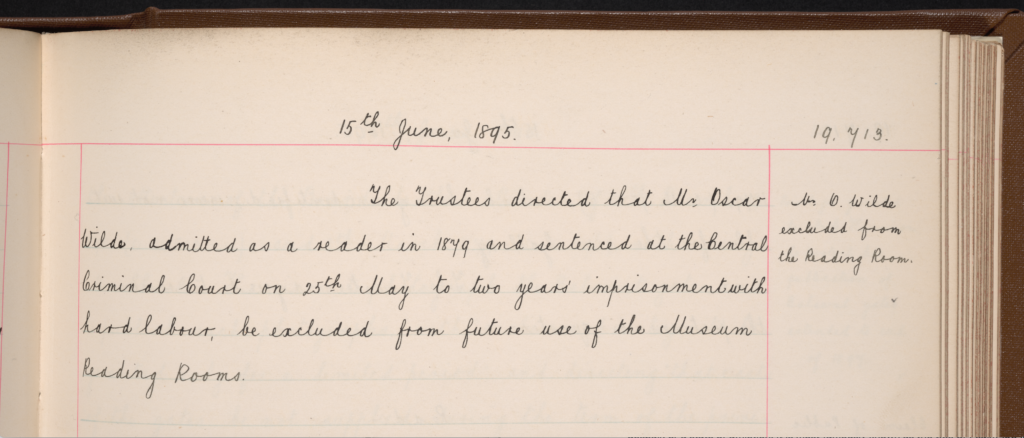 15th June, 1895.
19. 713.
The Trustees directed that Mr. Oscar
Wilde, admitted as a reader in 1879 and sentenced at the Central
Criminal Court on 25th May to two years' imprisonment with
hard labour, be excluded from future use of the Museum
Reading Rooms.
Mr. O. Wilde
excluded from
the Reading Room.